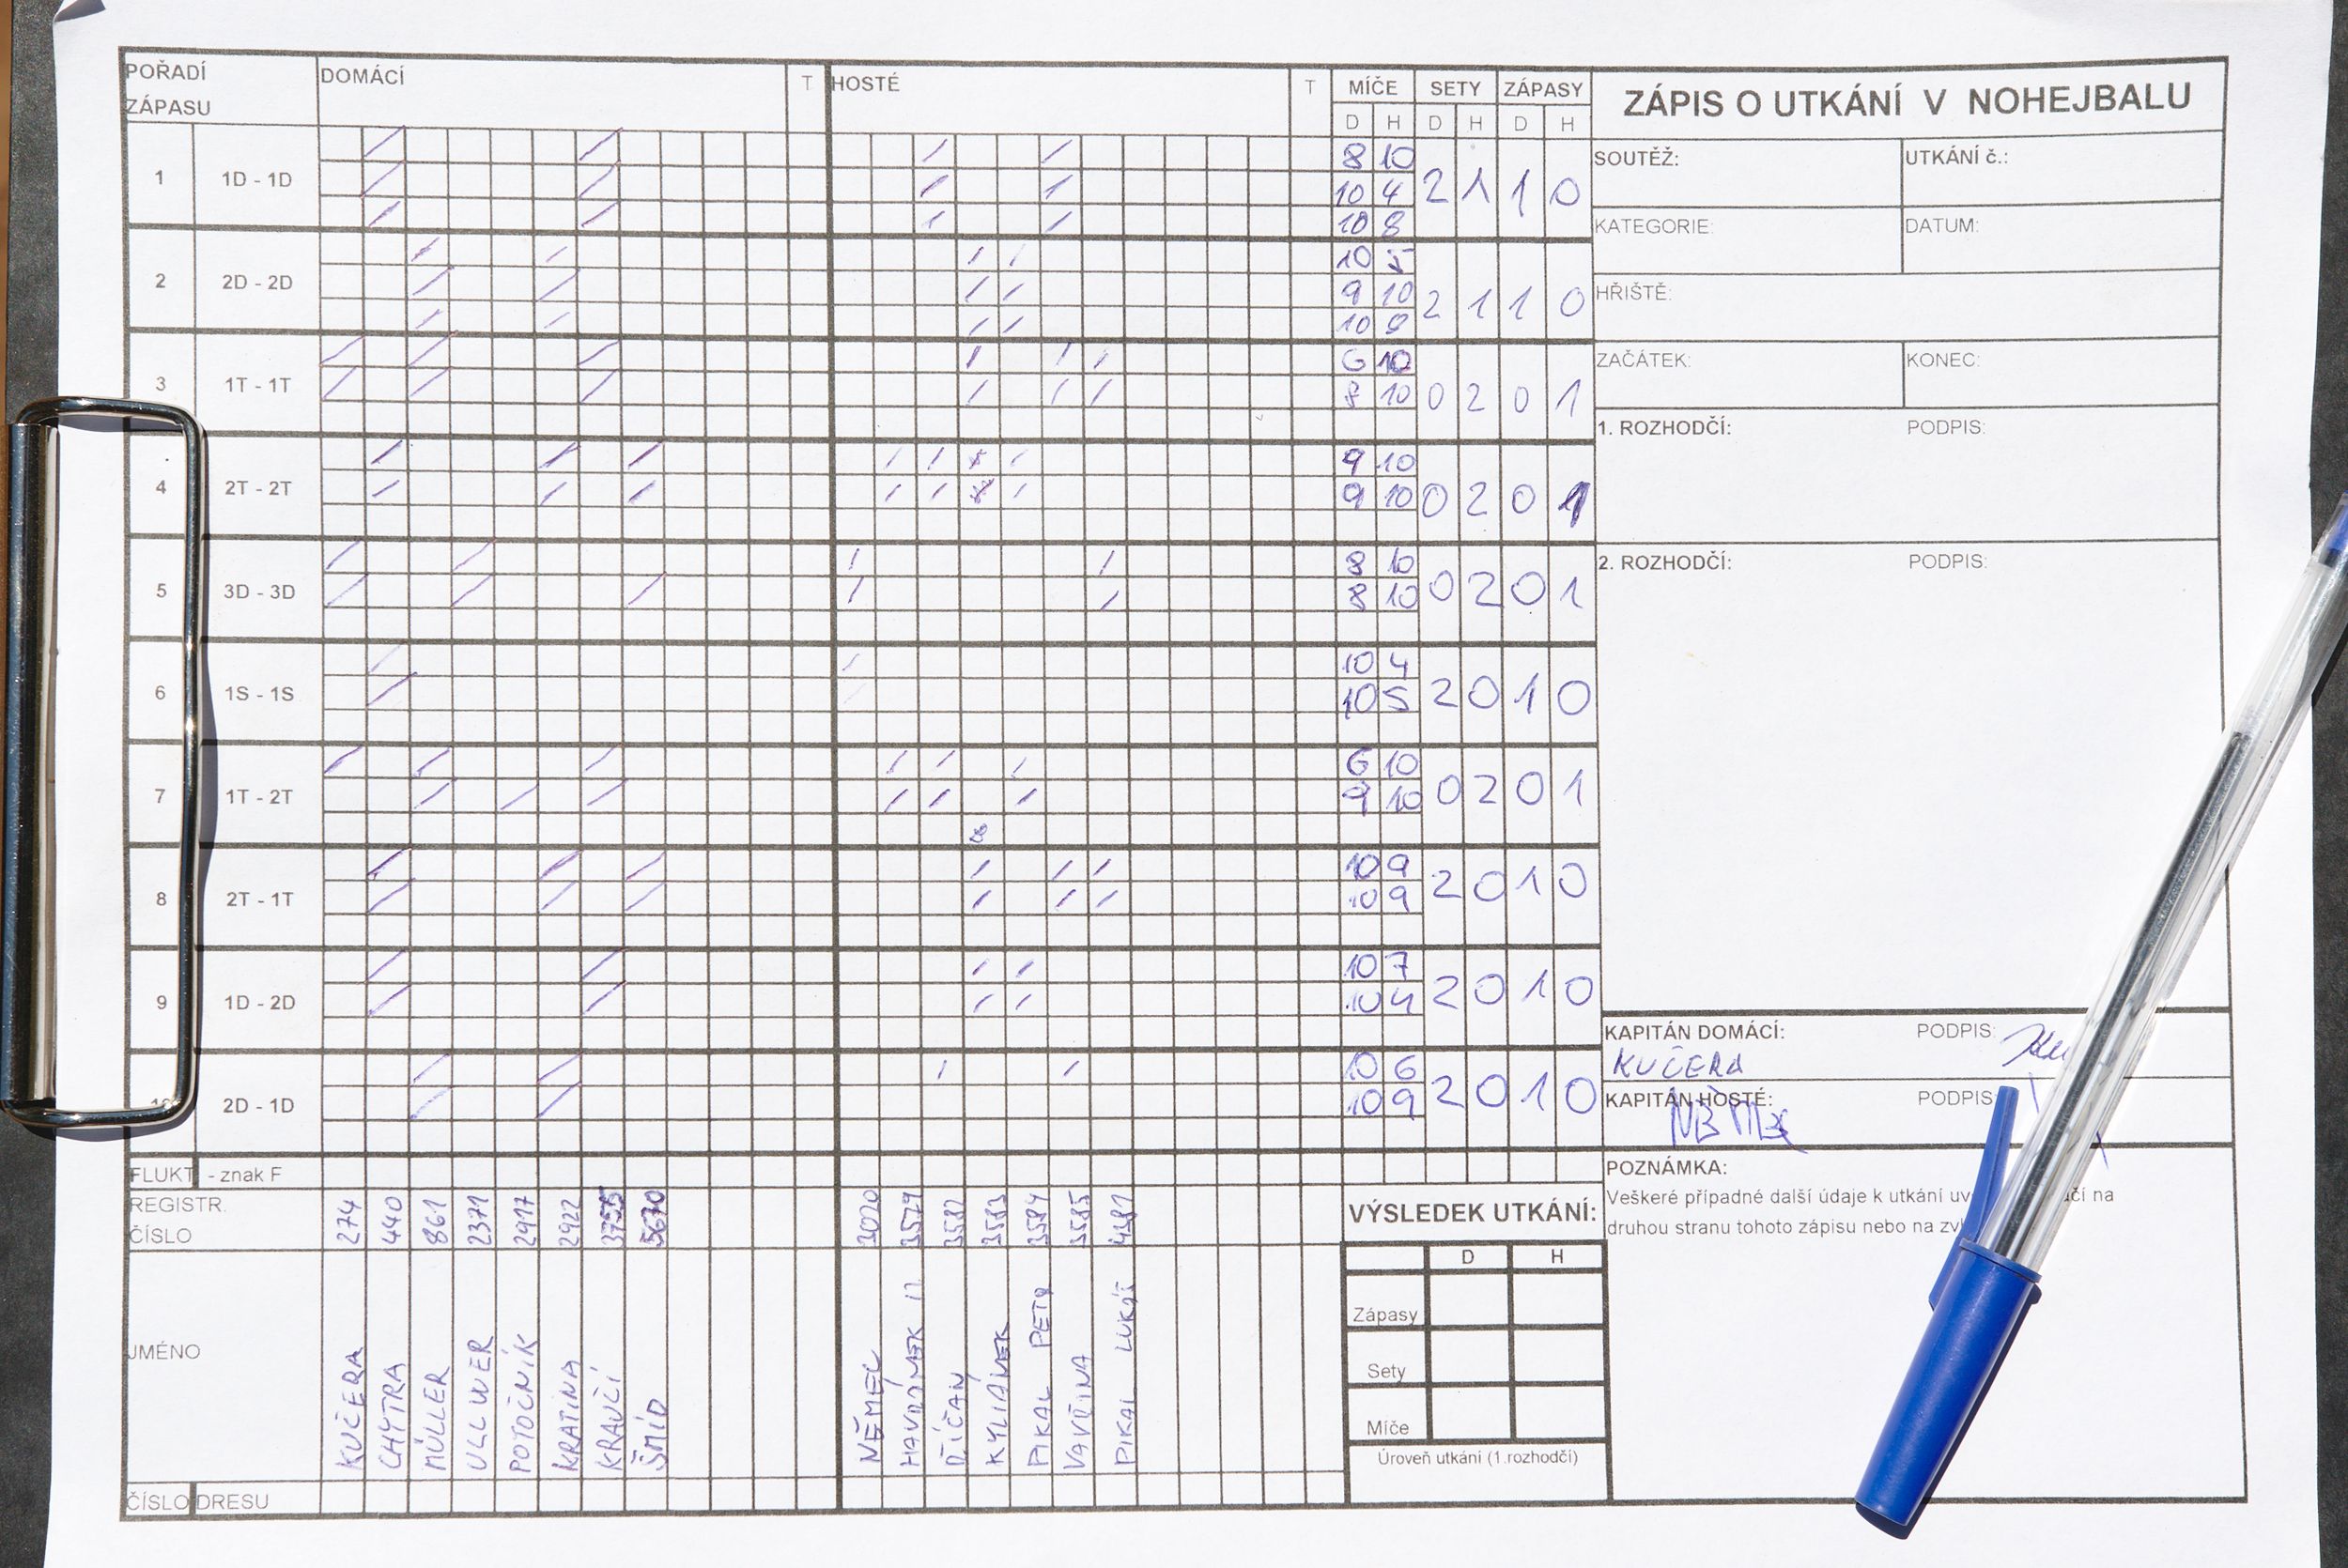 POŘADÍ ZÁPASU DOMÁCÍ T HOSTÉ T MÍČE SETY ZÁPASY
D H D H D H
1 1D - 1D 8 10 2 1 1 0
10 4
10 8
2 2D - 2D 10 5 2 1 1 0
9 10
10 9
3 1T - 1T 6 10 0 2 0 1
8 10
4 2T - 2T 9 10 0 2 0 1
9 10
5 3D - 3D 8 10 0 2 0 1
8 10
6 1S - 1S 10 4 2 0 1 0
10 5
7 1T - 2T 6 10 0 2 0 1
9 10
8 2T - 1T 10 9 2 0 1 0
10 9
9 1D - 2D 10 7 2 0 1 0
10 4
2D - 1D 10 6 2 0 1 0
10 9
FLUKT. - znak F
REGISTR. ČÍSLO 274 440 861 2371 2917 2922 3755 5670 3020 3579 3582 3583 3584 3585 4381
JMÉNO KUČERA CHYTRA MÜLLER ULLWER POTOČNÍK KRATINA KRAUČÍ ŠMÍD NĚMEC ŘÍČAN KYLIÁNEK PIKAL PETR VAVŘINA PIKAL LUKÁŠ
ČÍSLO DRESU
ZÁPIS O UTKÁNÍ V NOHEJBALU
SOUTĚŽ: UTKÁNÍ č.:
KATEGORIE: DATUM:
HŘIŠTĚ:
ZAČÁTEK: KONEC:
1. ROZHODČÍ: PODPIS:
2. ROZHODČÍ: PODPIS:
KAPITÁN DOMÁCÍ: PODPIS:
KUČERA
KAPITÁN HOSTÉ: PODPIS
POZNÁMKA:
Veškeré případné další údaje k utkání na
druhou stranu tohoto zápisu nebo na
VÝSLEDEK UTKÁNÍ:
D H
Zápasy
Sety
Míče
Úroveň utkání (1.rozhodčí)